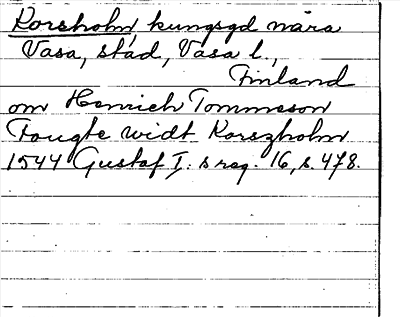 Korsholm, kungsgd nära
Vasa, stad, Vasa l.,
Finland
om Henrich Tommeson
Fougte widt Korszholm
1544 Gustaf I: s reg. 16, s. 478.